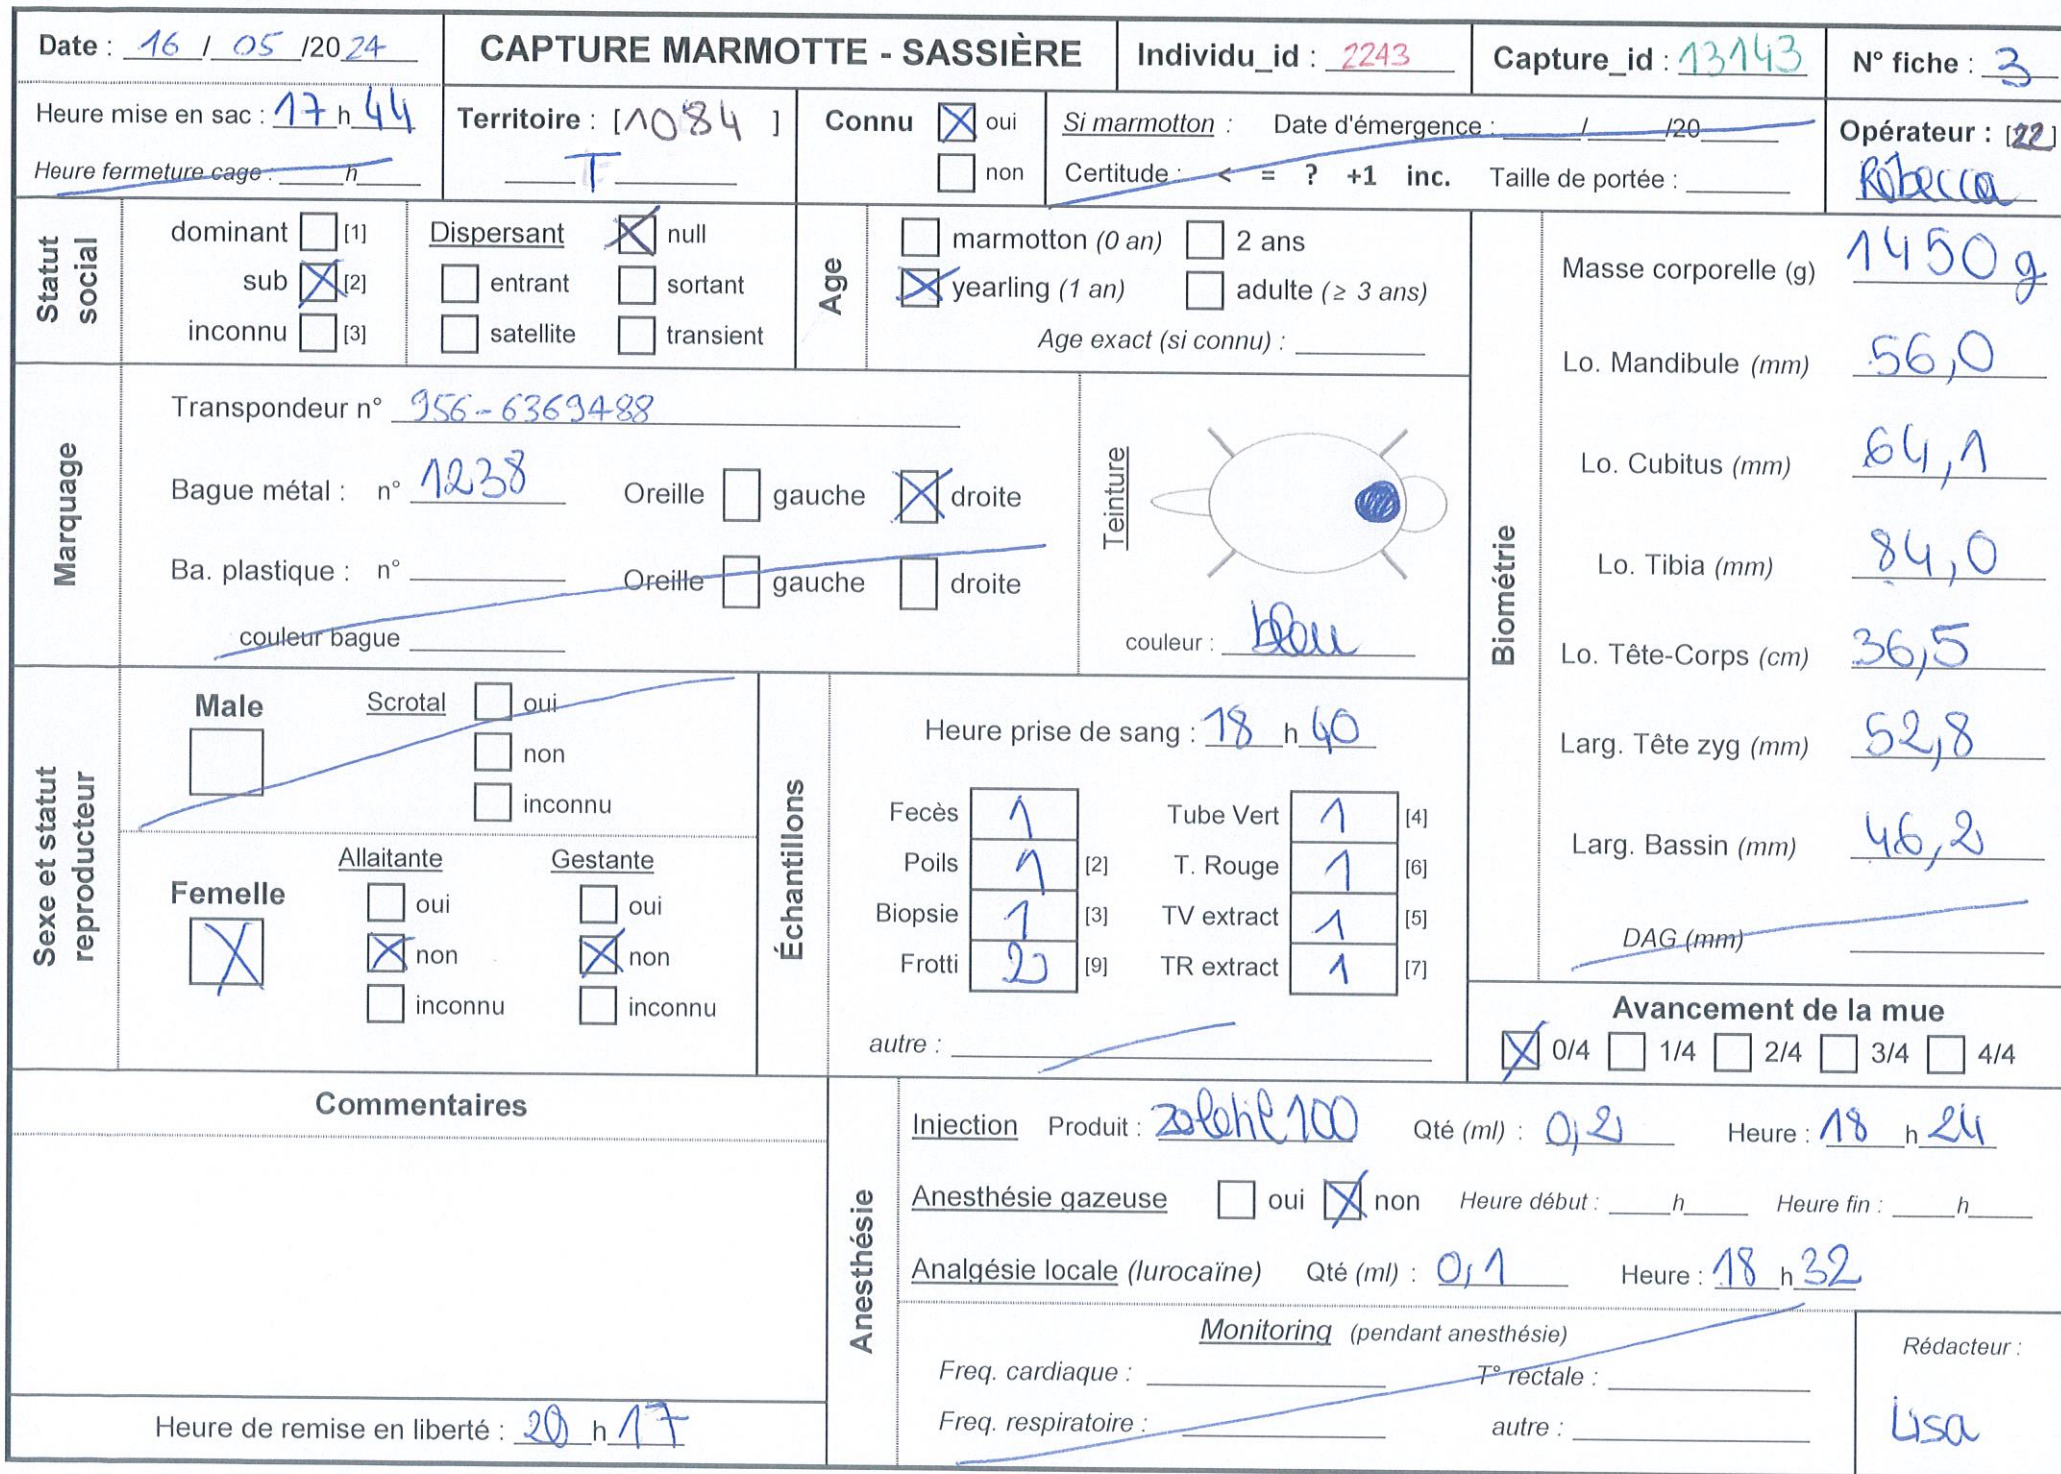 Date : 16 / 05 /2024 CAPTURE MARMOTTE - SASSIÈRE Individu_id : 2243 Capture_id : 13143 N° fiche : 3
Heure mise en sac : 17 h 44 Territoire : [1084 ] Connu oui Si marmotton : Date d'émergence : ____/____/20____ Opérateur : [22]
Heure fermeture cage : ____h____ T non Certitude : < = ? +1 inc. Taille de portée : ____ Rébecca
Statut social
dominant [1] Dispersant null
sub [2] entrant sortant
inconnu [3] satellite transient
Age
marmotton (0 an) 2 ans
yearling (1 an) adulte (≥ 3 ans)
Age exact (si connu) : ____
Marquage
Transpondeur n° 956-6369488
Bague métal : n° 1238 Oreille gauche droite
Ba. plastique : n° ____ Oreille gauche droite
couleur bague ____
Teinture
couleur : bleu
Biométrie
Masse corporelle (g) 1450 g
Lo. Mandibule (mm) 56,0
Lo. Cubitus (mm) 64,1
Lo. Tibia (mm) 84,0
Lo. Tête-Corps (cm) 36,5
Larg. Tête zyg (mm) 52,8
Larg. Bassin (mm) 46,2
DAG (mm) ____
Sexe et statut reproducteur
Male Scrotal oui
non
inconnu
Allaitante Gestante
Femelle oui oui
non non
inconnu inconnu
Échantillons
Heure prise de sang : 18 h 40
Fecès 1 Tube Vert 1 [4]
Poils 1 [2] T. Rouge 1 [6]
Biopsie 1 [3] TV extract 1 [5]
Frotti 2 [9] TR extract 1 [7]
autre : ____
Avancement de la mue
0/4 1/4 2/4 3/4 4/4
Commentaires
Heure de remise en liberté : 20 h 17
Anesthésie
Injection Produit : zoletil 100 Qté (ml) : 0,2 Heure : 18 h 24
Anesthésie gazeuse oui non Heure début : ____h____ Heure fin : ____h____
Analgésie locale (lurocaïne) Qté (ml) : 0,1 Heure : 18 h 32
Monitoring (pendant anesthésie)
Freq. cardiaque : ____ T° rectale : ____
Freq. respiratoire : ____ autre : ____
Rédacteur :
Lisa